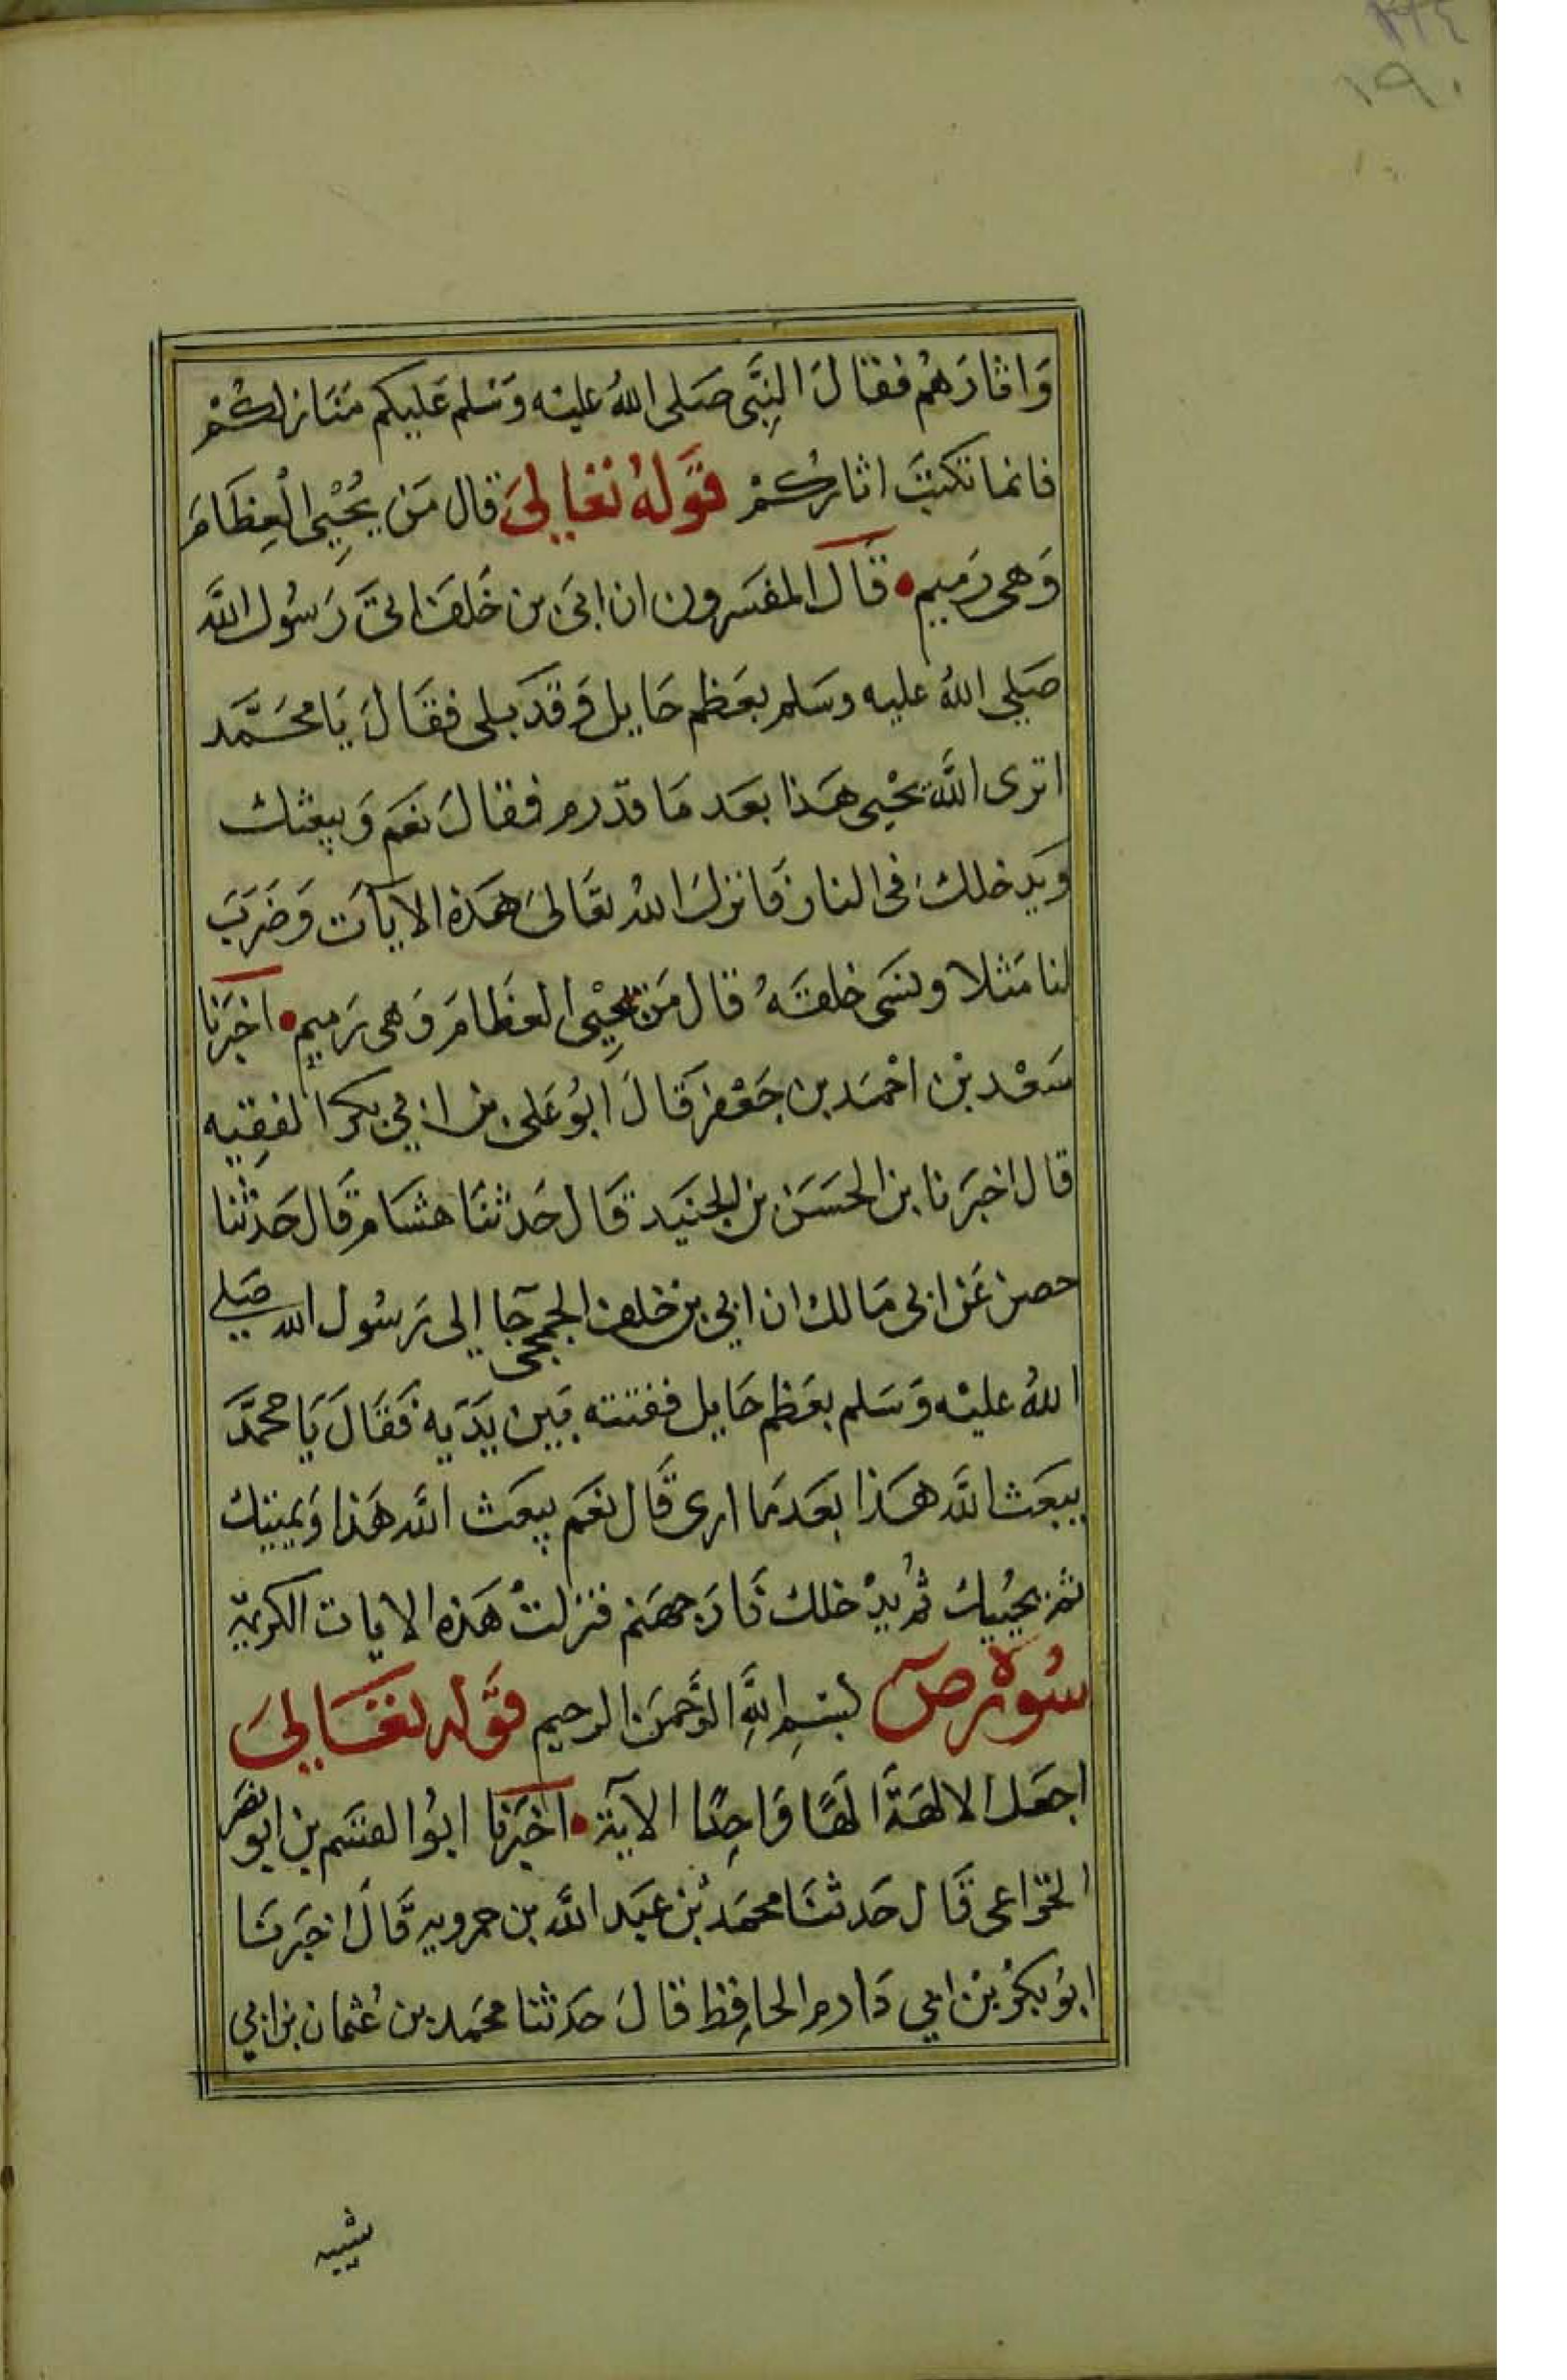 ١٩٠
وَاثارَهُم فقالَ النِبَّى صَلى اللهُ عليْه وَسَلم عَليكم مَنَازلكُمْ
فانما تكتبَ اثاركُمْ قَولهُ تعَالىَ قال مَن يُحْيِى الْعِظَامَ
وَهى رَميم • قَالَ المفسَرون ان ابىَ بن خَلف اتى رَسُول اللَّه
صَلي اللهُ عليه وسَلم بعَظم حَايل وَقدَ بلى فقَالَ يَا محَمَّد
اترى اللَّه يحْيى هَذا بعَد مَا قدرم فقالَ نعَم وَيبعثك
وَيدخلكَ فى النار فَانزلَ اللهُ تعَالىَ هَذه الايآت وَضَرَبَ
لنا مَثلا ونسَى خلقَهُ قال مَن يحِيْى العظَامَ وَهى رَميم • اخبَرنا
سَعْد بْن احْمَد بن جَعْفر قَالَ ابُو عَلى بن ابي بكر الفقِيه
قال اخبَرنا بن الحسَن بن الجنَيد قَال حَدثنَا هشَام قَال حَدثنا
حصن عَن ابى مَالك ان ابي بن خلف الجمحى جآ الى رَسُول الله صَلي
اللهُ عليْه وَسَلم بعَظم حَايل ففتته بَين يَدَيه فَقَالَ يَا محمَّدَ
يبعَث اللَّه هَذا بَعَد مَا ارى قَال نعَم يبعَث اللَّه هَذا وَيميتك
ثم يحُييك ثُم يدْخلك نَارَ جهَنم فنزلتْ هَذه الايات الكريمة
سُورة صۤ بسْمِ اللَّهِ الرَّحمَن الرحيم قَوله تعَالىَ
اجعَل الالهَةَ الهًا وَاحِدًا الآية • اخبَرنا ابُو القسَم بن ابو نصر
الخزاعى قَال حَدثنَا محمَد بْن عبَد اللَّه بن حمرويه قَالَ اخبَرنَا
ابُو بكُر بْن ابي دَارم الحافِظ قالَ حَدثنا محمَد بن عُثمان بن ابي
شيبه